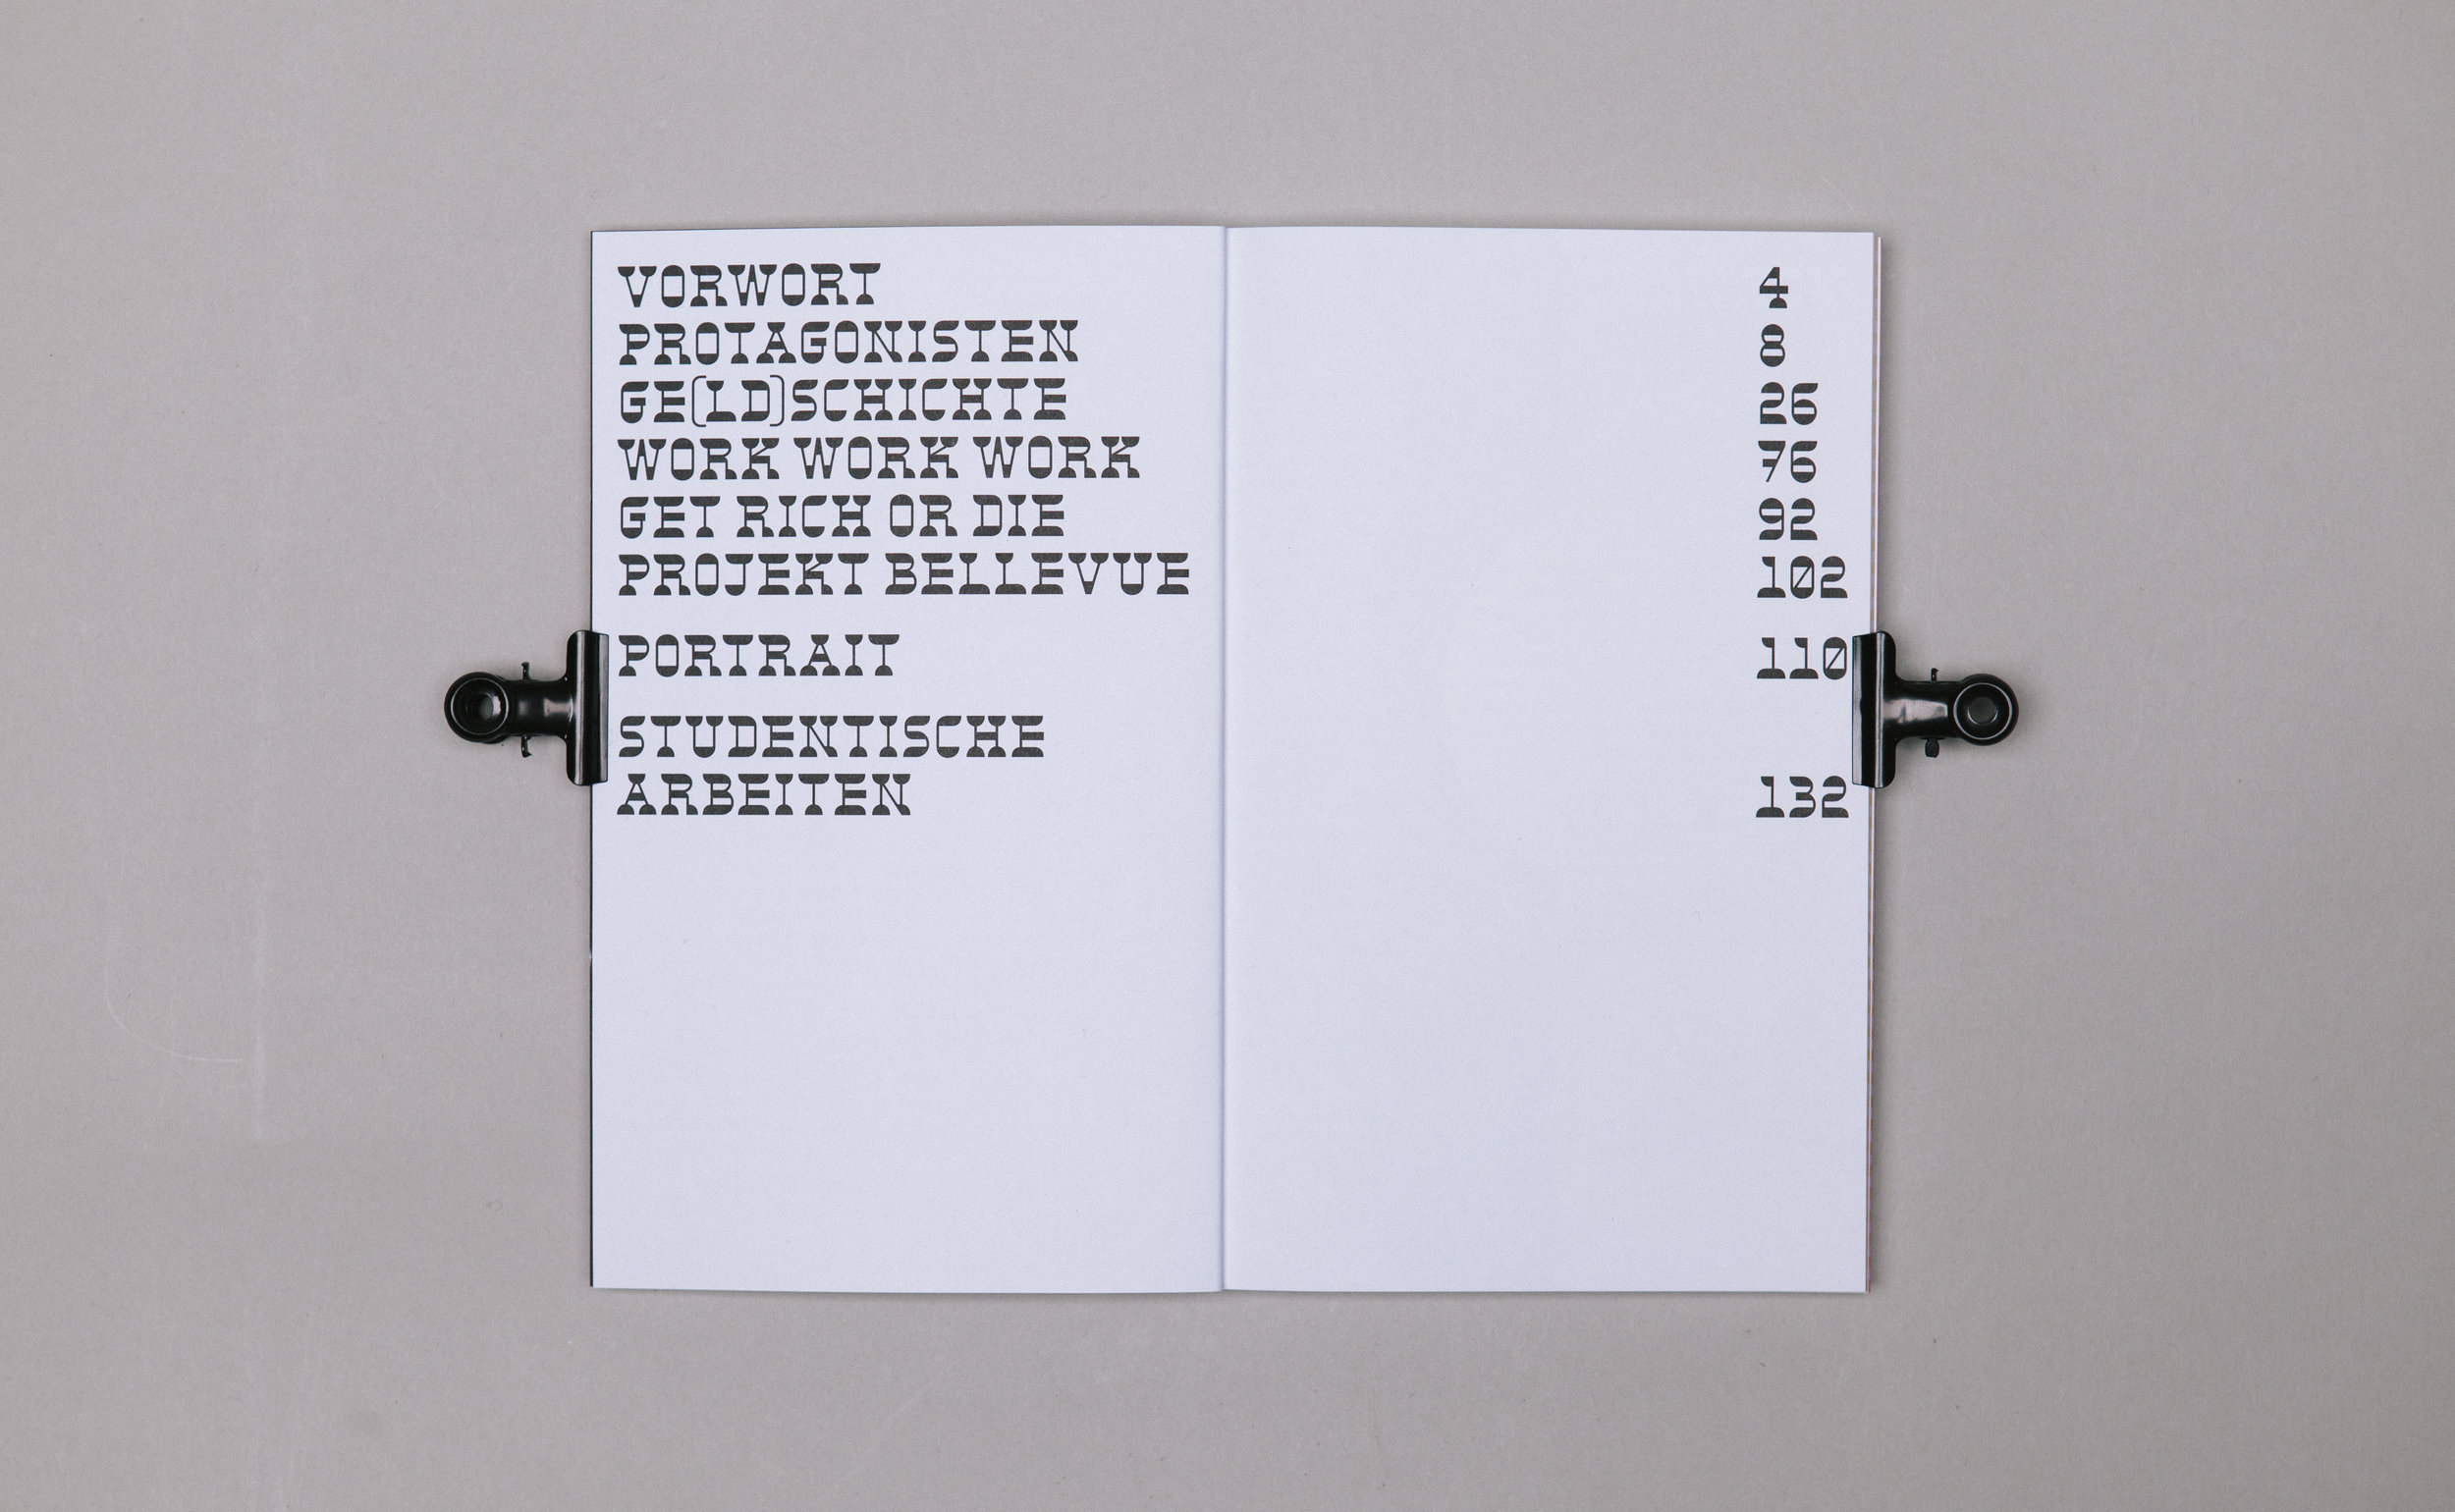 VORWORT 4
PROTAGONISTEN 8
GE(LD)SCHICHTE 26
WORK WORK WORK 76
GET RICH OR DIE 92
PROJEKT BELLEVUE 102
PORTRAIT 110
STUDENTISCHE
ARBEITEN 132